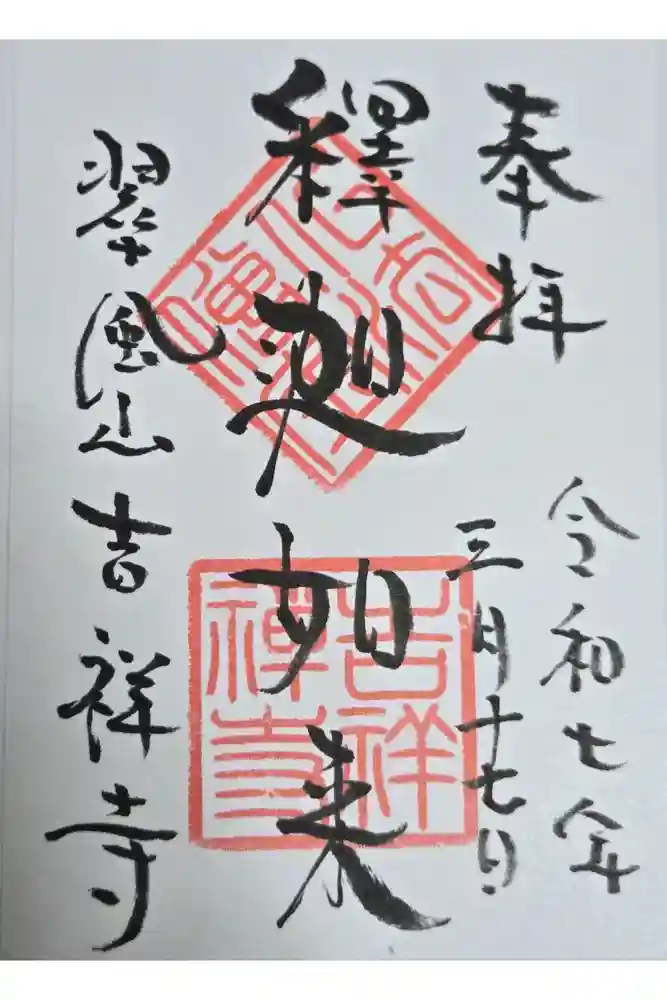 奉拝
令和七年
三月十七日
釋迦如来
吉祥
禪寺
翠風山吉祥寺